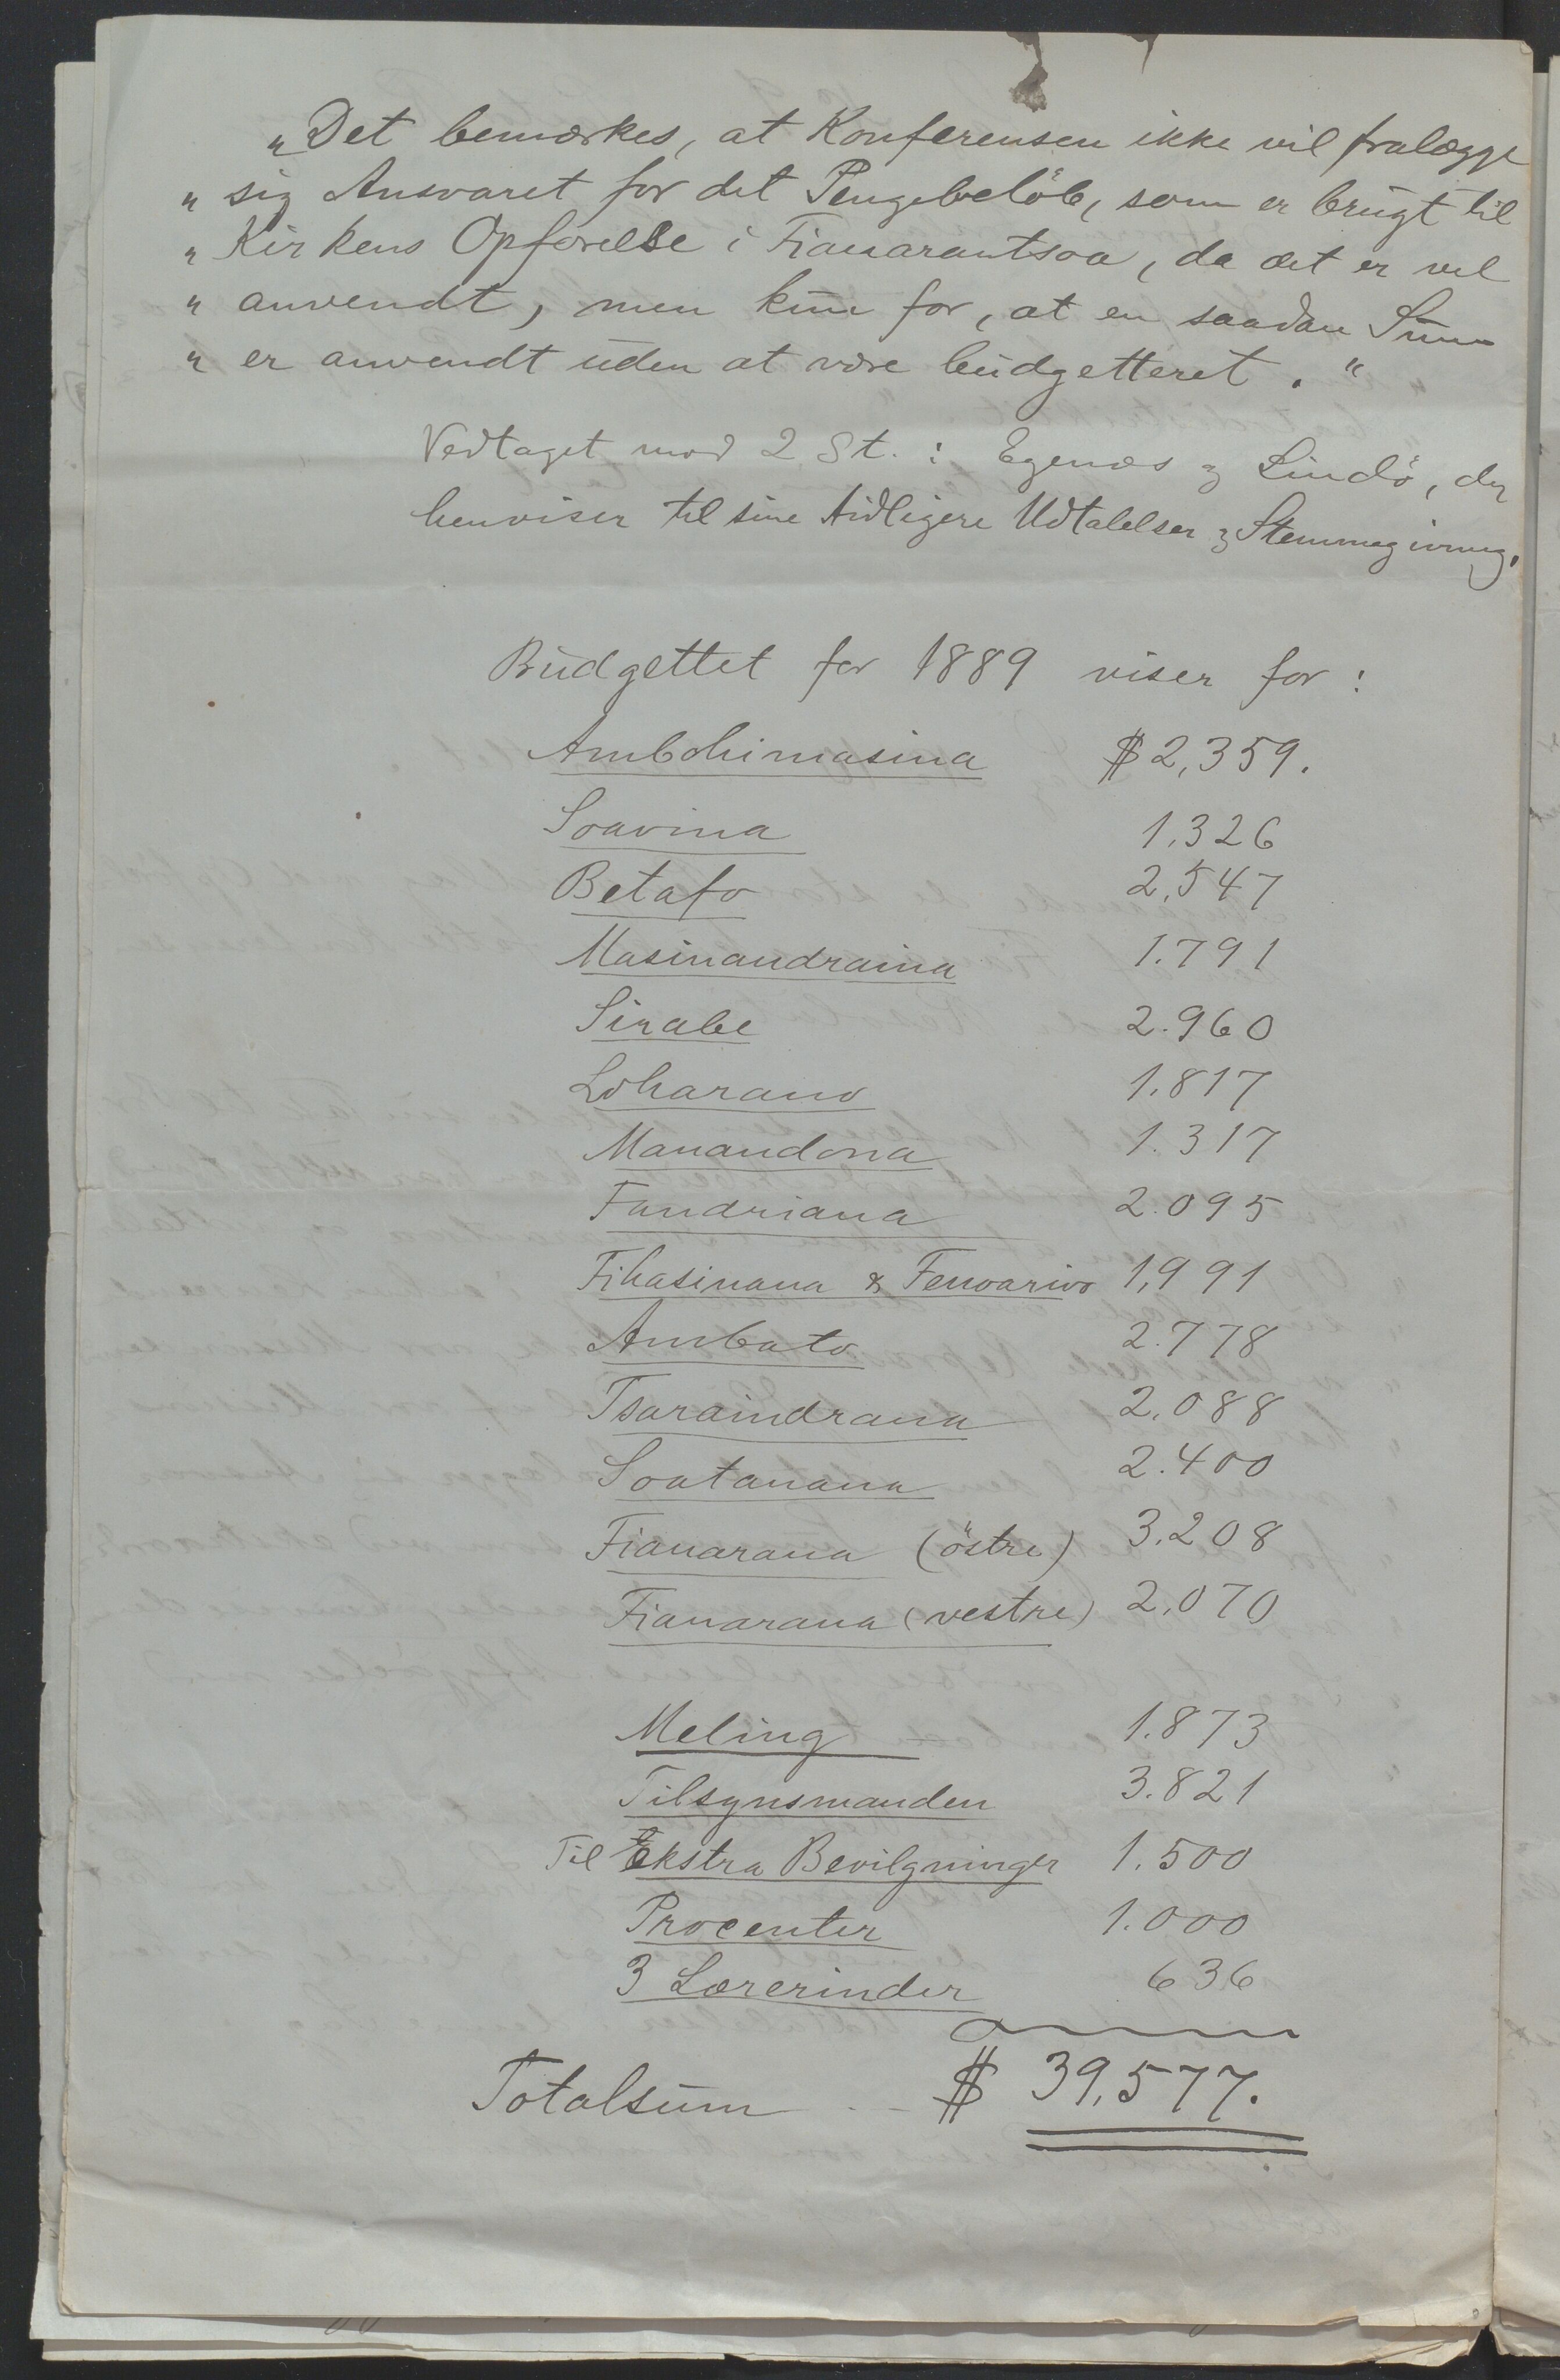 „Det bemærkes, at Konferensen ikke vil fralægge
„ sig Ansvaret for det Pengebeløb, som er brugt til
„ Kirkens Opførelse i Fianarantsoa, da det er vel
„ anvendt, men kun for, at en saadan Sum
„ er anvendt uden at være budgetteret. "
Vedtaget mod 2 St.: Egenæs og Lindö, der
henviser til sine tidligere Udtalelser og Stemmegivning.
Budgettet for 1889 viser for:
Ambohimasina $ 2,359.
Soavina 1.326
Betafo 2.547
Masinandraina 1.791
Sirabe 2.960
Loharano 1.817
Manandona 1.317
Fandriana 2.095
Fihasinana & Fenoarivo 1,991
Ambato 2.778
Tsaraindrana 2.088
Soatanana 2.400
Fianarana (östre) 3.208
Fianarana (vestre) 2.070
Meling 1.873
Tilsynsmanden 3.821
Til Ekstra Bevilgninger 1.500
Procenter 1.000
3 Lærerinder 636
Totalsum $ 39,577.